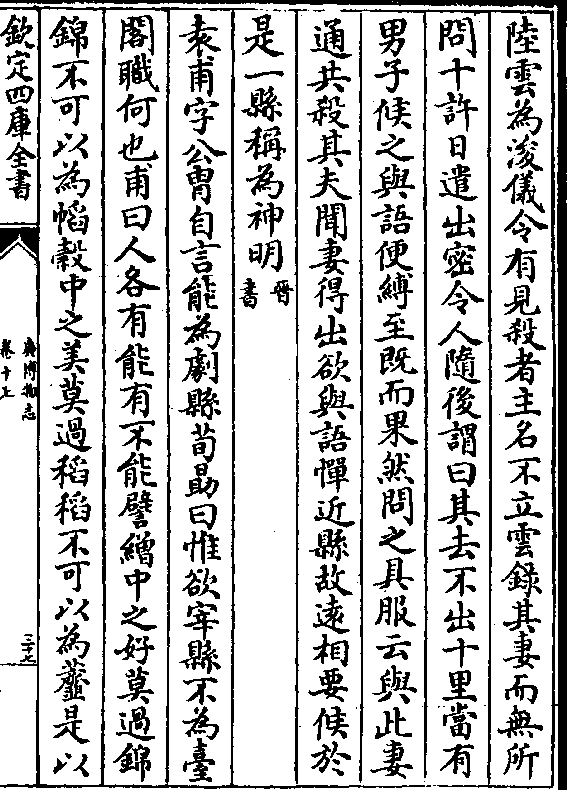 陸雲為浚儀令有見殺者主名不立雲錄其妻而無所
問十許日遣出密令人隨後謂曰其去不出十里當有
男子候之與語便縛至既而果然問之具服云與此妻
通共殺其夫聞妻得出欲與語憚近縣故遠相要候於
是一縣稱為神明晉書
袁甫字公胄自言能為劇縣荀勗曰惟欲宰縣不為臺
閣職何也甫曰人各有能有不能譬繒中之好莫過錦
錦不可以為幍穀中之美莫過稻稻不可以為虀是以
欽定四庫全書
廣博物志
卷十七
三十七